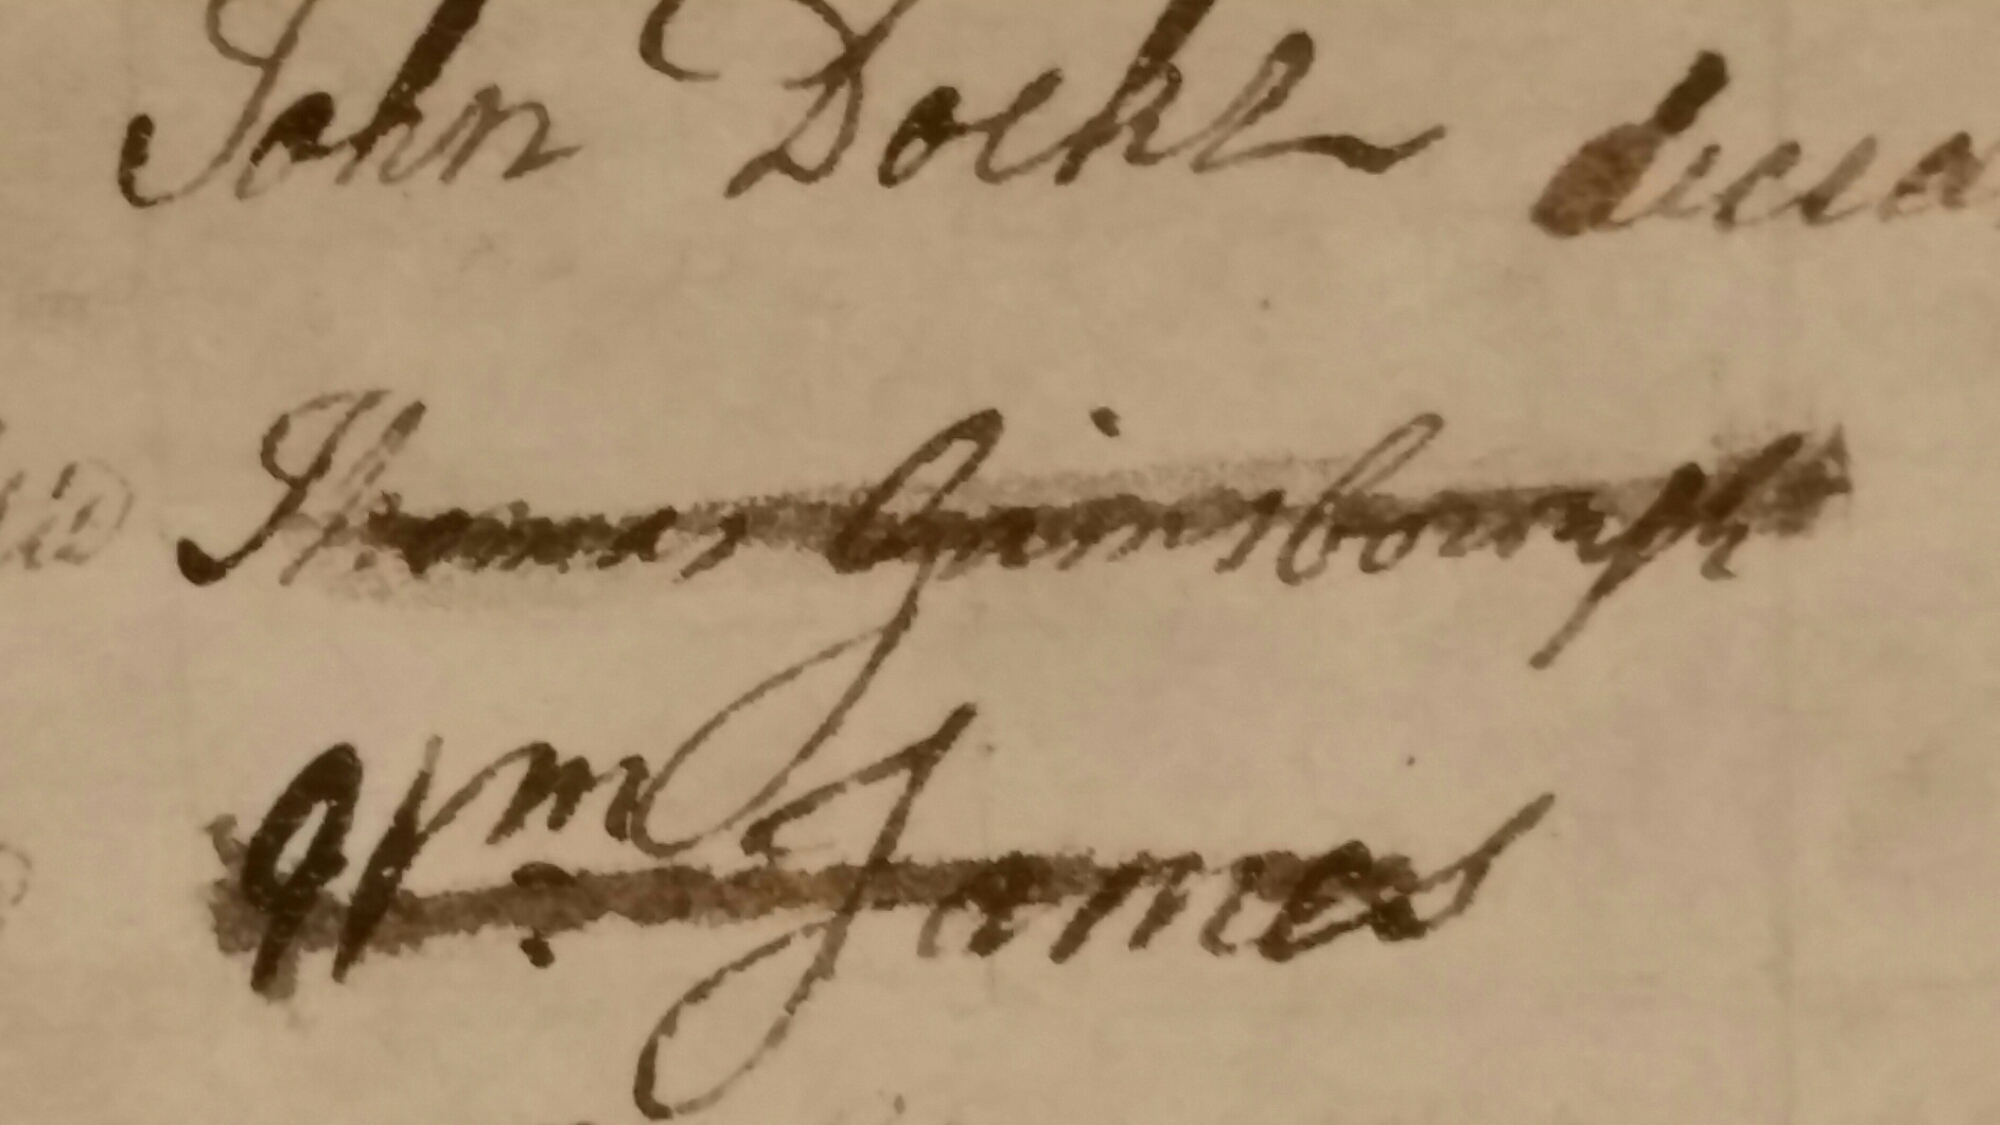 John Doehl dead
Thomas Gainsborough
Wm. James